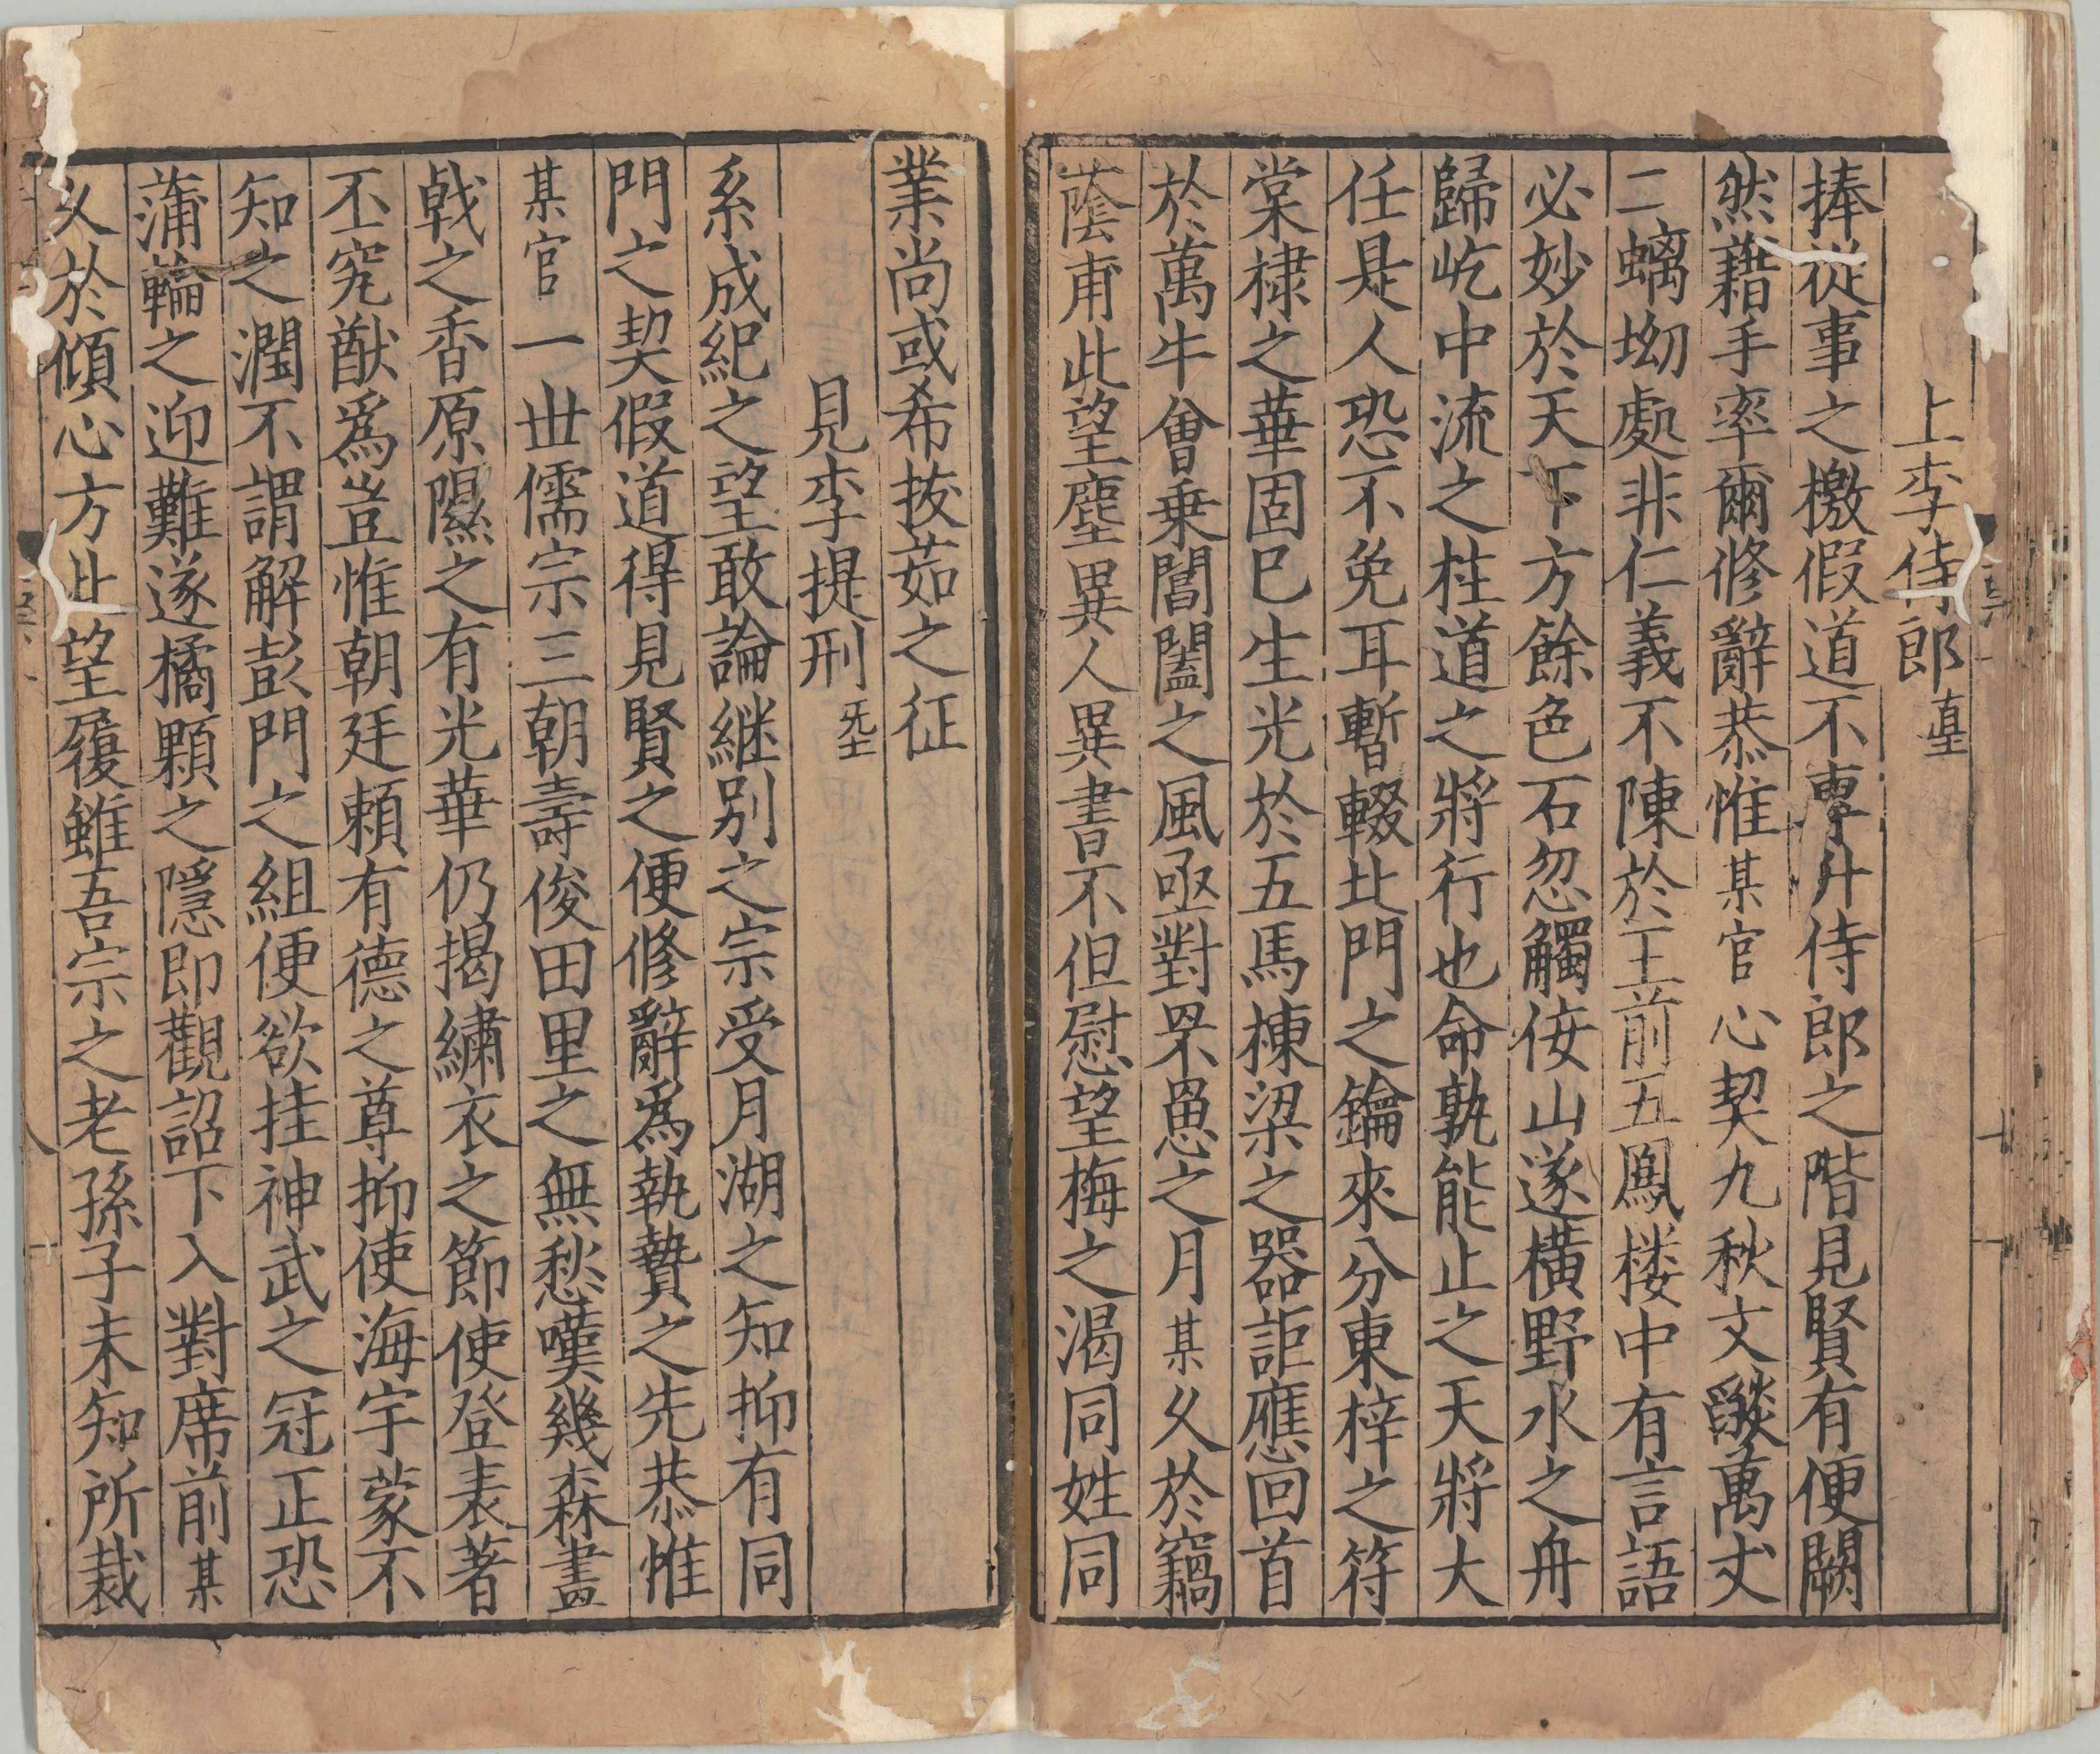 上李侍郎㙜
捧從事之檄假道不專升侍郎之階見賢有便闕
然藉手率爾修辭恭惟某官心契九秋文燄萬丈
二螭坳處非仁義不陳於王前五鳳楼中有言語
必妙於天下方餘色石忽觸侒山遂橫野水之舟
歸屹中流之柱道之將行也命孰能止之天將大
任是人恐不免耳暫輟北門之鑰來分東梓之符
棠棣之華固已生光於五馬棟梁之器詎應回首
於萬牛會乗閶闔之風亟對罘罳之月某久於竊
蔭甫此望塵異人異書不但慰望梅之渴同姓同
業尚或希拔茹之征
見李提刑
系成紀之望敢論継别之宗受月湖之知抑有同
門之契假道得見賢之便修辭為執贄之先恭惟
某官一丗儒宗三朝壽俊田里之無愁嘆幾森畫
戟之香原隰之有光華仍揭繡衣之節使登表著
丕究猷爲豈惟朝廷頼有德之尊抑使海宇蒙不
知之潤不謂解彭門之組便欲挂神武之冠正恐
蒲輪之迎難遂橘顆之隱即觀詔下入對席前某
久於傾心方此望履雖吾宗之老孫子未知所裁